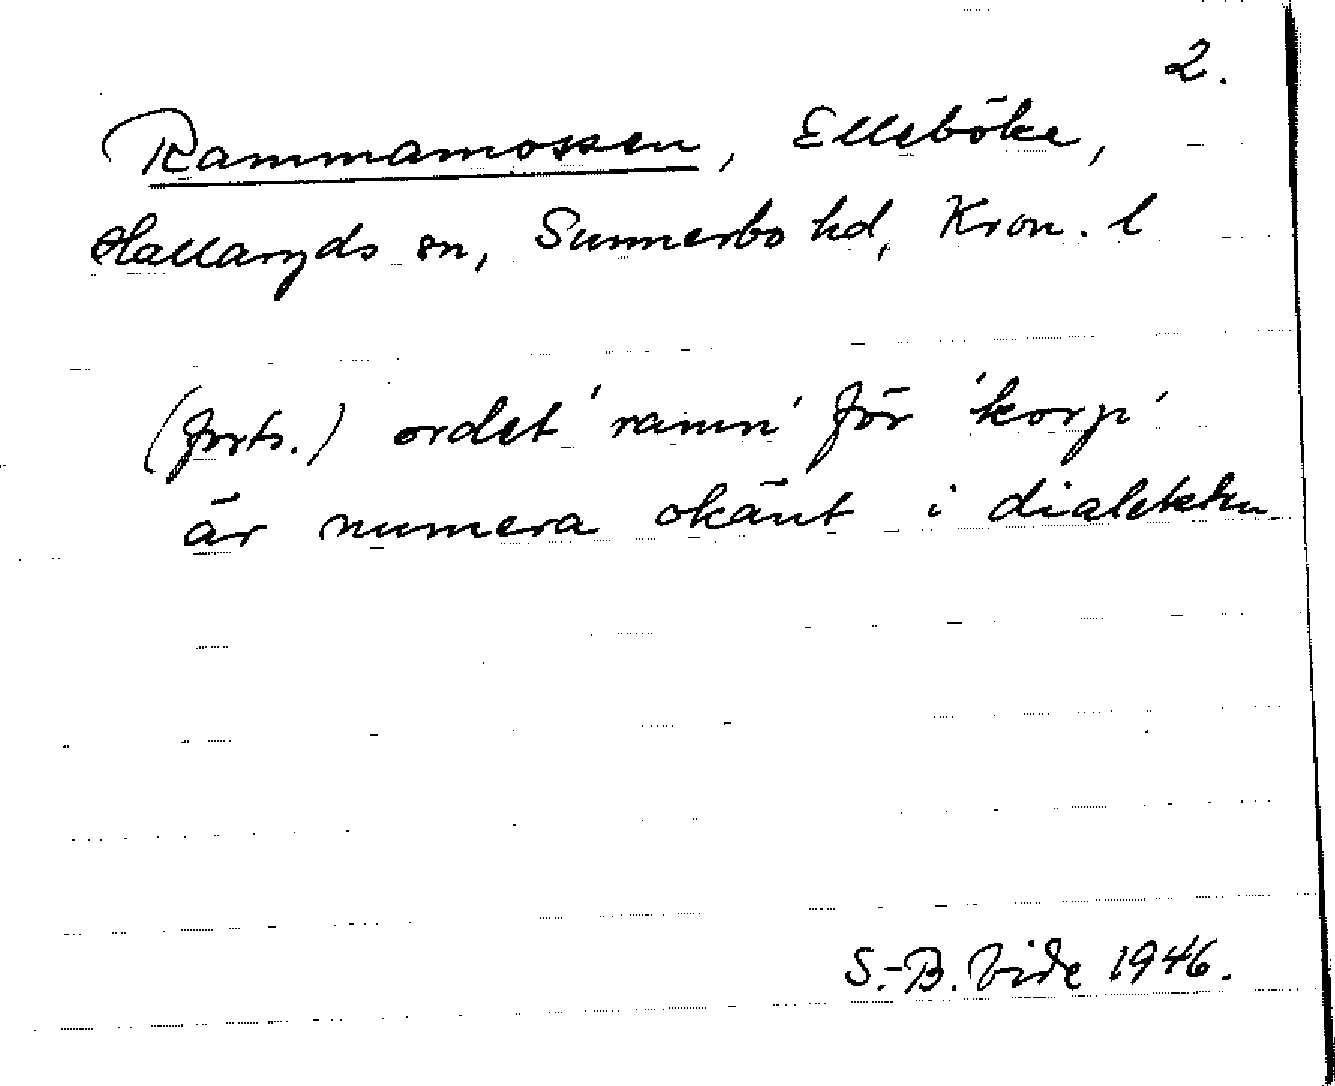 2.
Rammamossen, Elleböke,
Hallaryds sn, Sunnerbo hd, Kron. l
(forts.) ordet 'ramn' för 'korp'
är numera okänt i dialekten
S.-B. Vide 1946.